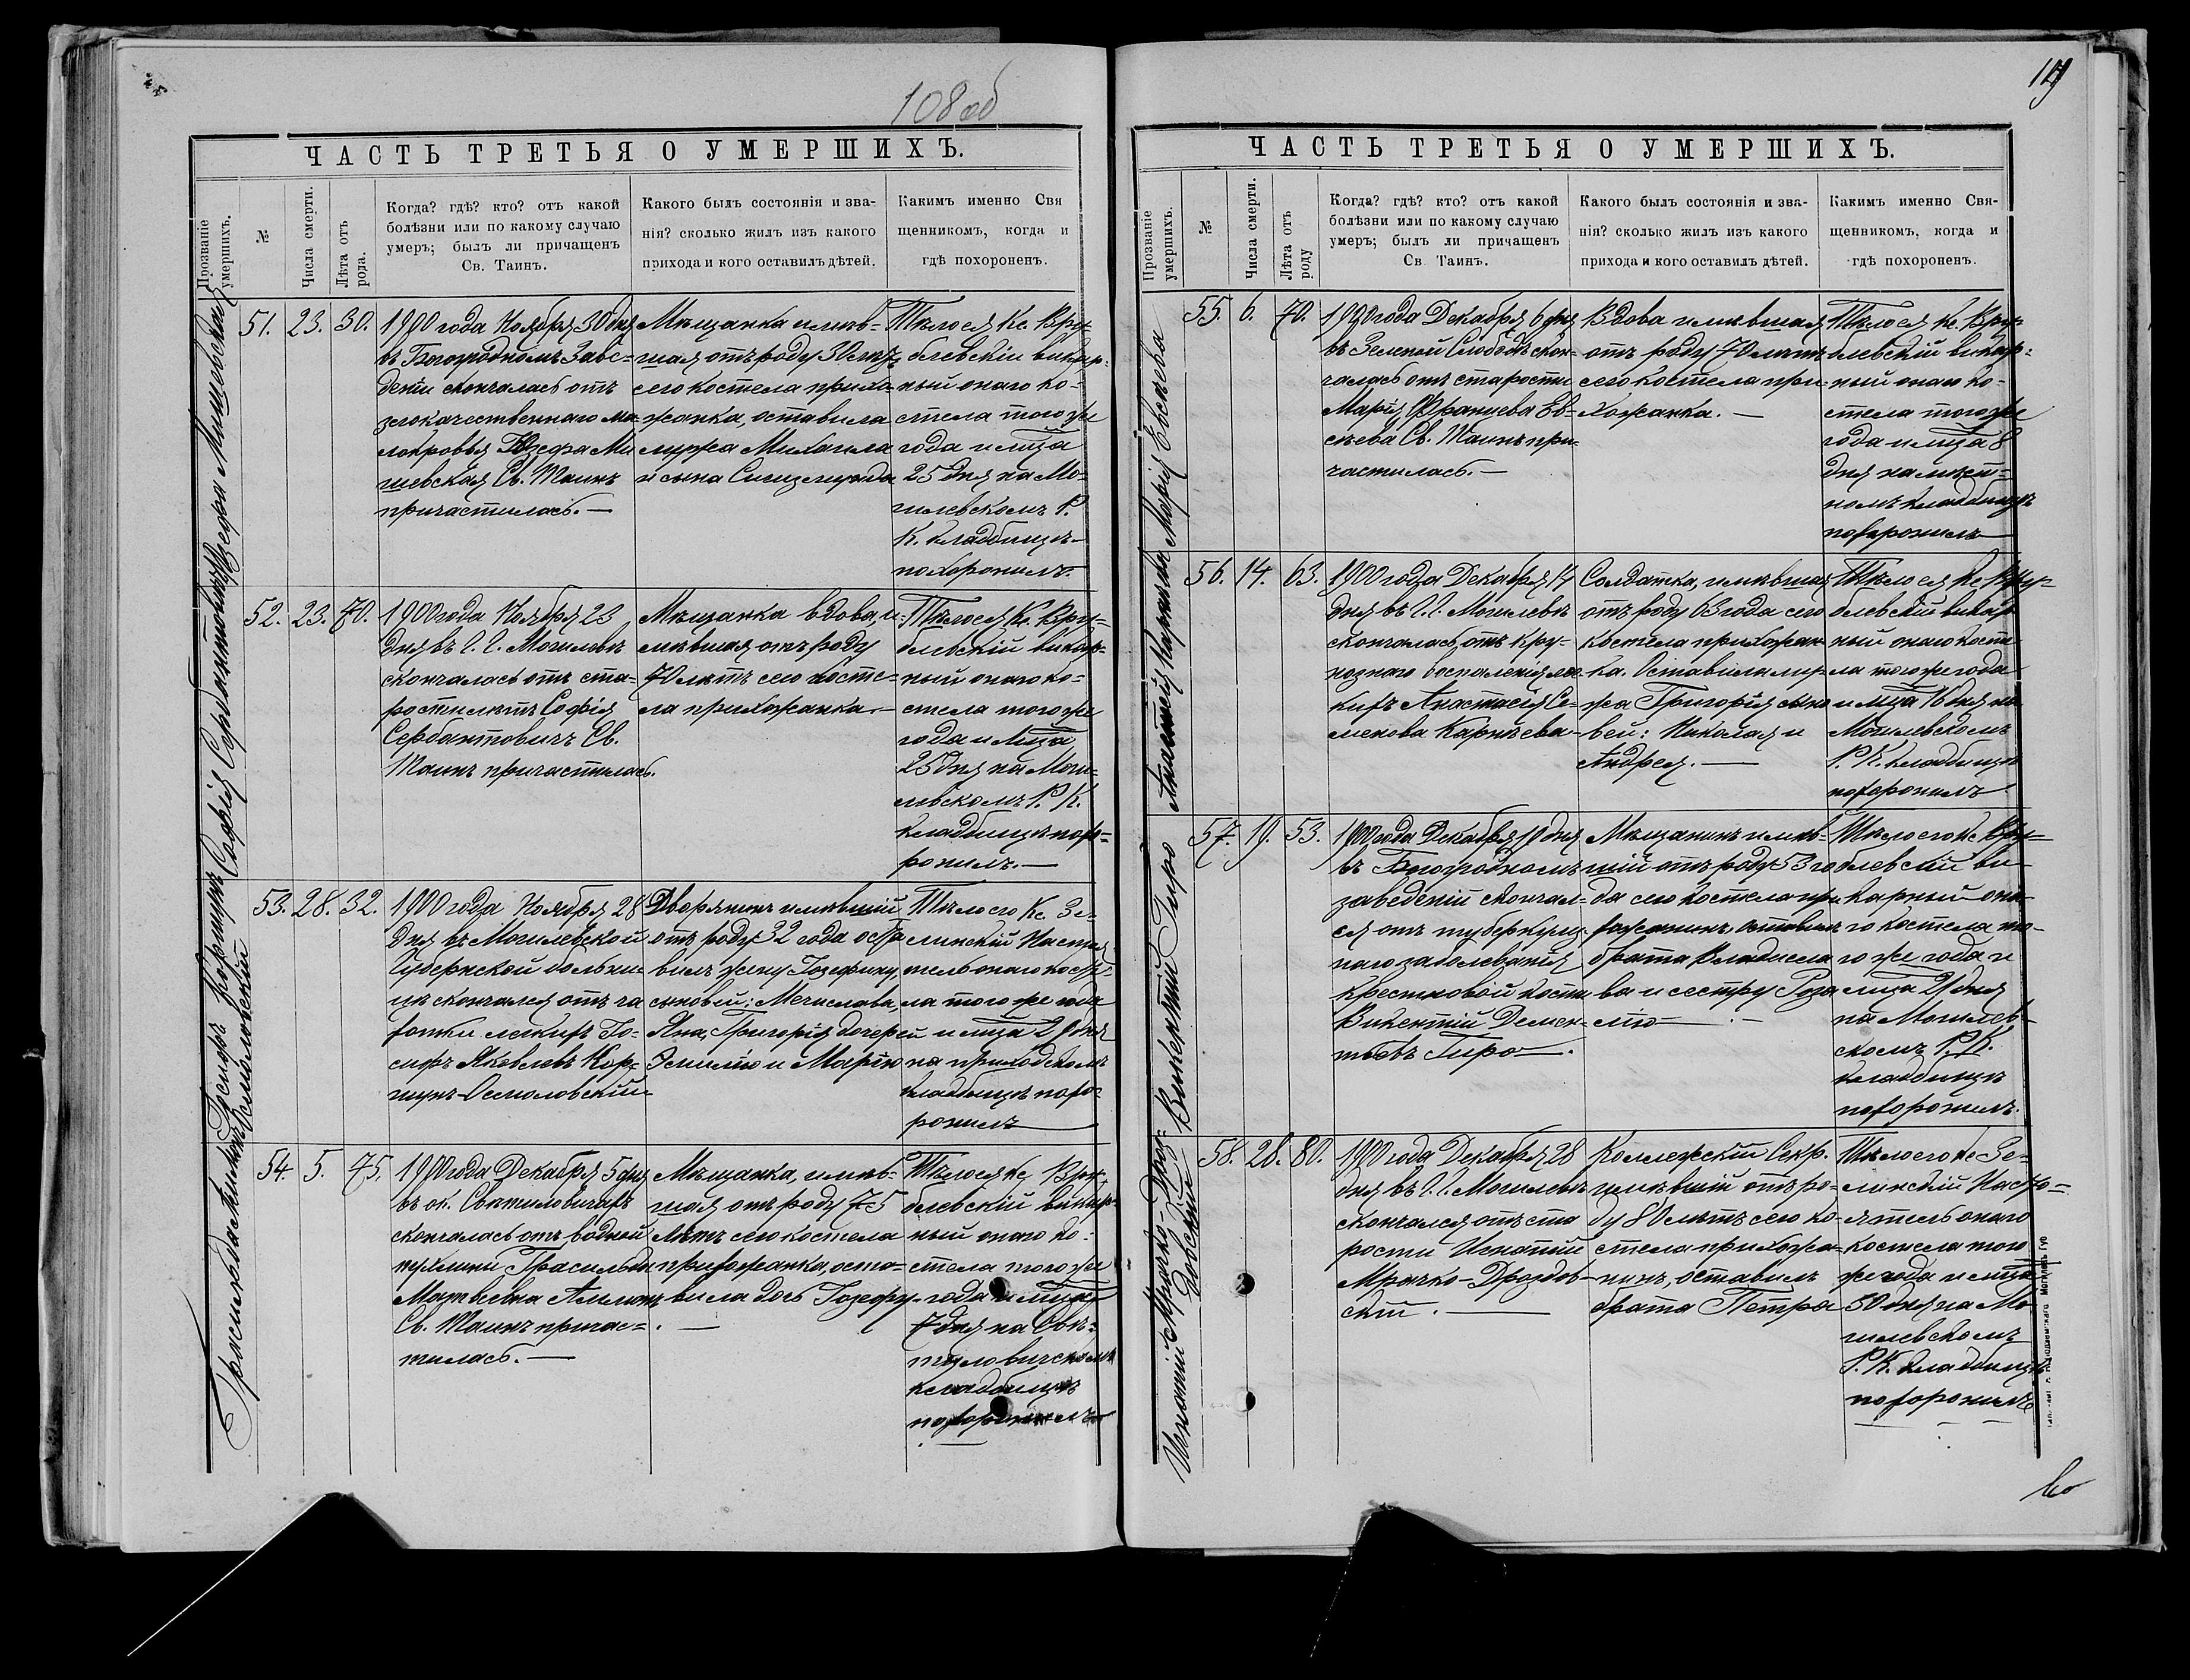 108 об
ЧАСТЬ ТРЕТЬЯ О УМЕРШИХЪ.
Прозваніе умершихъ.
№
Числа смерти.
Лѣта отъ рода.
Когда? гдѣ? кто? отъ какой
болѣзни или по какому случаю
умеръ; былъ ли причащенъ
Св. Таинъ.
Какого былъ состоянія и зва-
нія? сколько жилъ изъ какого
прихода и кого оставилъ дѣтей.
Какимъ именно Свя
щенникомъ, когда и
гдѣ похороненъ.
Іозефа Мишевская
51. 23. 30.
1900 года Ноября 30 дня
въ Богоугодномъ Заве-
деніи скончалась отъ
злокачественнаго ма-
локровья Іозефа Ми
шевская Св. Таинъ
причастилась.—
Мѣщанка имѣв-
шая отъ роду 30 лѣтъ
сего костела прихо-
жанка, оставила
мужа Михаила
и сына Сигизмунда
Тѣло ея Кс. Вру-
блевскій викар-
ный онаго ко-
стела того же
года и мѣца
25 дня на Мо-
гилевскомъ Р.
К. кладбищѣ
похоронилъ.
Софія Сербантовичъ
52. 23. 70.
1900 года Ноября 23
дня въ Г. Г. Могилевѣ
скончалась отъ ста-
рости лѣтъ Софія
Сербантовичъ Св.
Таинъ причастилась.
Мѣщанка вдова, и-
мѣвшая отъ роду
70 лѣтъ сего косте-
ла прихожанка.—
Тѣло ея Кс. Вру-
блевскій викар-
ный онаго ко-
стела того же
года и мѣца
25 дня на Моги-
левскомъ Р. К.
кладбищѣ похо-
ронилъ.—
Іосифъ Коршунъ
Осмоловскій
53. 28. 32.
1900 года Ноября 28
дня въ Могилевской
Губернской больни-
цѣ скончался отъ ча
хотки легкихъ Іо-
сифъ Яковлевъ Кор-
шунъ-Осмоловскій
Дворянинъ имѣвшій
отъ роду 32 года оста
вилъ жену Іозефину,
сыновей: Мечислава,
Яна, Григорія дочерей
Эмилію и Марію
Тѣло его Кс. Зе-
линскій Настоя
тель онаго косте
ла того же года
и мѣца 29 дня
на приходскомъ
кладбищѣ похо-
ронилъ
54. 5. 75.
1900 года Декабря 5 дня
въ ок. Свѣтиловичахъ
скончалась отъ водной
пухлины
Матвѣевна
Св. Таинъ причас-
тилась.—
Мѣщанка, имѣв-
шая отъ роду 75
лѣтъ сего костела
прихожанка, оста-
вила дочь Іозефу.
Тѣло ея Кс. Вру-
блевскій викар-
ный онаго ко-
стела того же
года и мѣца
7 дня на Свѣ-
тиловичскомъ
кладбищѣ
похоронилъ
ЧАСТЬ ТРЕТЬЯ О УМЕРШИХЪ.
Прозваніе умершихъ.
№
Числа смерти.
Лѣта отъ роду
Когда? гдѣ? кто? отъ какой
болѣзни или по какому случаю
умеръ; былъ ли причащенъ
Св. Таинъ.
Какого былъ состоянія и зва-
нія? сколько жилъ изъ какого
прихода и кого оставилъ дѣтей.
Какимъ именно Свя-
щенникомъ, когда и
гдѣ похороненъ.
Марія Евсѣева
55. 6. 70.
1900 года Декабря 6 дня
въ Зеленой Слободѣ скон-
чалась отъ старости
Марія Францева Ев-
сѣева Св. Таинъ при-
частилась.—
Вдова имѣвшая
отъ роду 70 лѣтъ
сего костела при-
хожанка.—
Тѣло ея Кс. Вру-
блевскій викар-
ный онаго ко-
стела того же
года и мѣца 8
дня на мѣст-
номъ кладбищѣ
похоронилъ
Анастасія Карнѣева
56. 14. 63.
1900 года Декабря 14
дня въ Г. Г. Могилевѣ
скончалась отъ кру-
познаго воспаленія лег-
кихъ Анастасія Се-
менова Карнѣева
Солдатка, имѣвшая
отъ роду 63 года сего
костела прихожан-
ка. Оставила му-
жа Григорія сыно
вей: Николая и
Андрея.—
Тѣло ея Кс. Вру-
блевскій викар
ный онаго косте
ла того же года
и мѣца 16 дня на
Могилевскомъ
Р. К. кладбищѣ
похоронилъ
Викентій Гиро
57. 19. 53.
1900 года Декабря 19 дня
въ Богоугодномъ
заведеніи скончал-
ся отъ туберкулез-
наго заболеванія
крестцовой кости
Викентій Демен-
тьевъ Гиро—.
Мѣщанинъ имѣв-
шій отъ роду 53 го
да сего костела при
хожанинъ, оставилъ
брата Владисла
ва и сестру Роза
лію—
Тѣло его Кс. Вру-
блевскій ви-
карный она-
го костела то-
го же года и
мѣца 21 дня
на Могилев-
скомъ Р. К.
кладбищѣ
похоронилъ.
Игнатій Мрочко-Дроз-
довскій
58. 28. 80.
1900 года Декабря 28
дня въ Г. Г. Могилевѣ
скончался отъ ста
рости Игнатій
Мрочко-Дроздов-
скій.—
Коллежскій Секр.
имѣвшій отъ ро-
ду 80 лѣтъ сего ко-
стела прихожа-
нинъ, оставилъ
брата Петра
Тѣло его Кс. Зе-
линскій Насто-
ятель онаго
костела того
же года и мѣца
30 дня на Мо
гилевскомъ
Р. К. кладбищѣ
похоронилъ